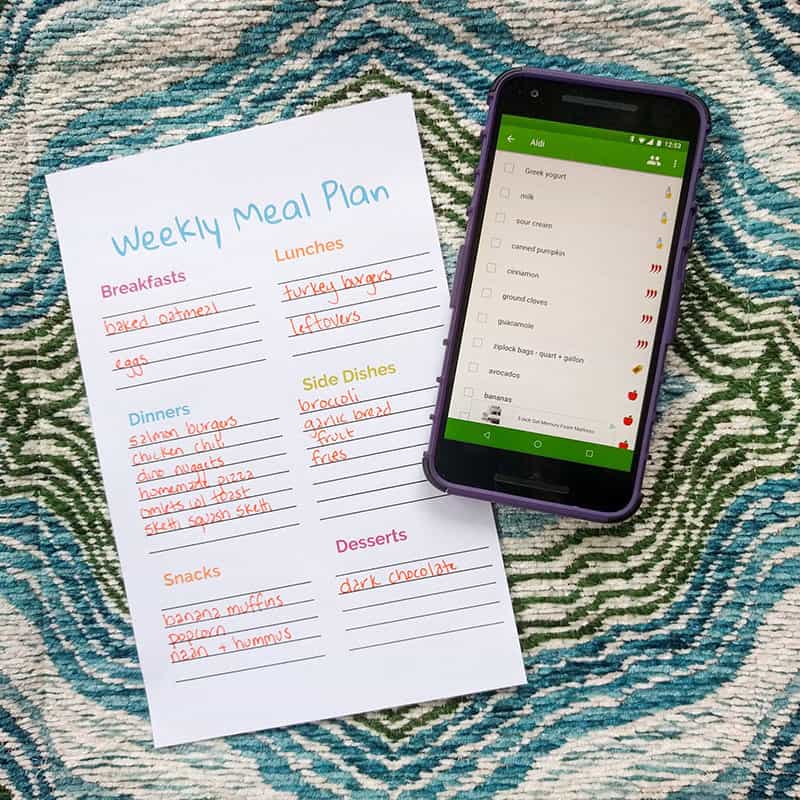 Weekly Meal Plan
Breakfasts
baked oatmeal
eggs
Lunches
turkey burgers
leftovers
Dinners
salmon burgers
chicken chili
dino nuggets
homemade pizza
omlets w/ toast
sketti squash sketti
Side Dishes
broccoli
garlic bread
fruit
fries
Snacks
banana muffins
popcorn
naan + hummus
Desserts
dark chocolate
12:53
Aldi
Greek yogurt
milk
sour cream
canned pumpkin
cinnamon
ground cloves
guacamole
ziplock bags - quart + gallon
avocados
bananas
Memory Foam Mattress